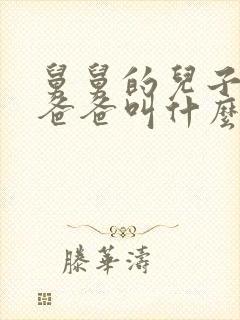 舅舅的兒子
爸爸叫什麼
滕華濤